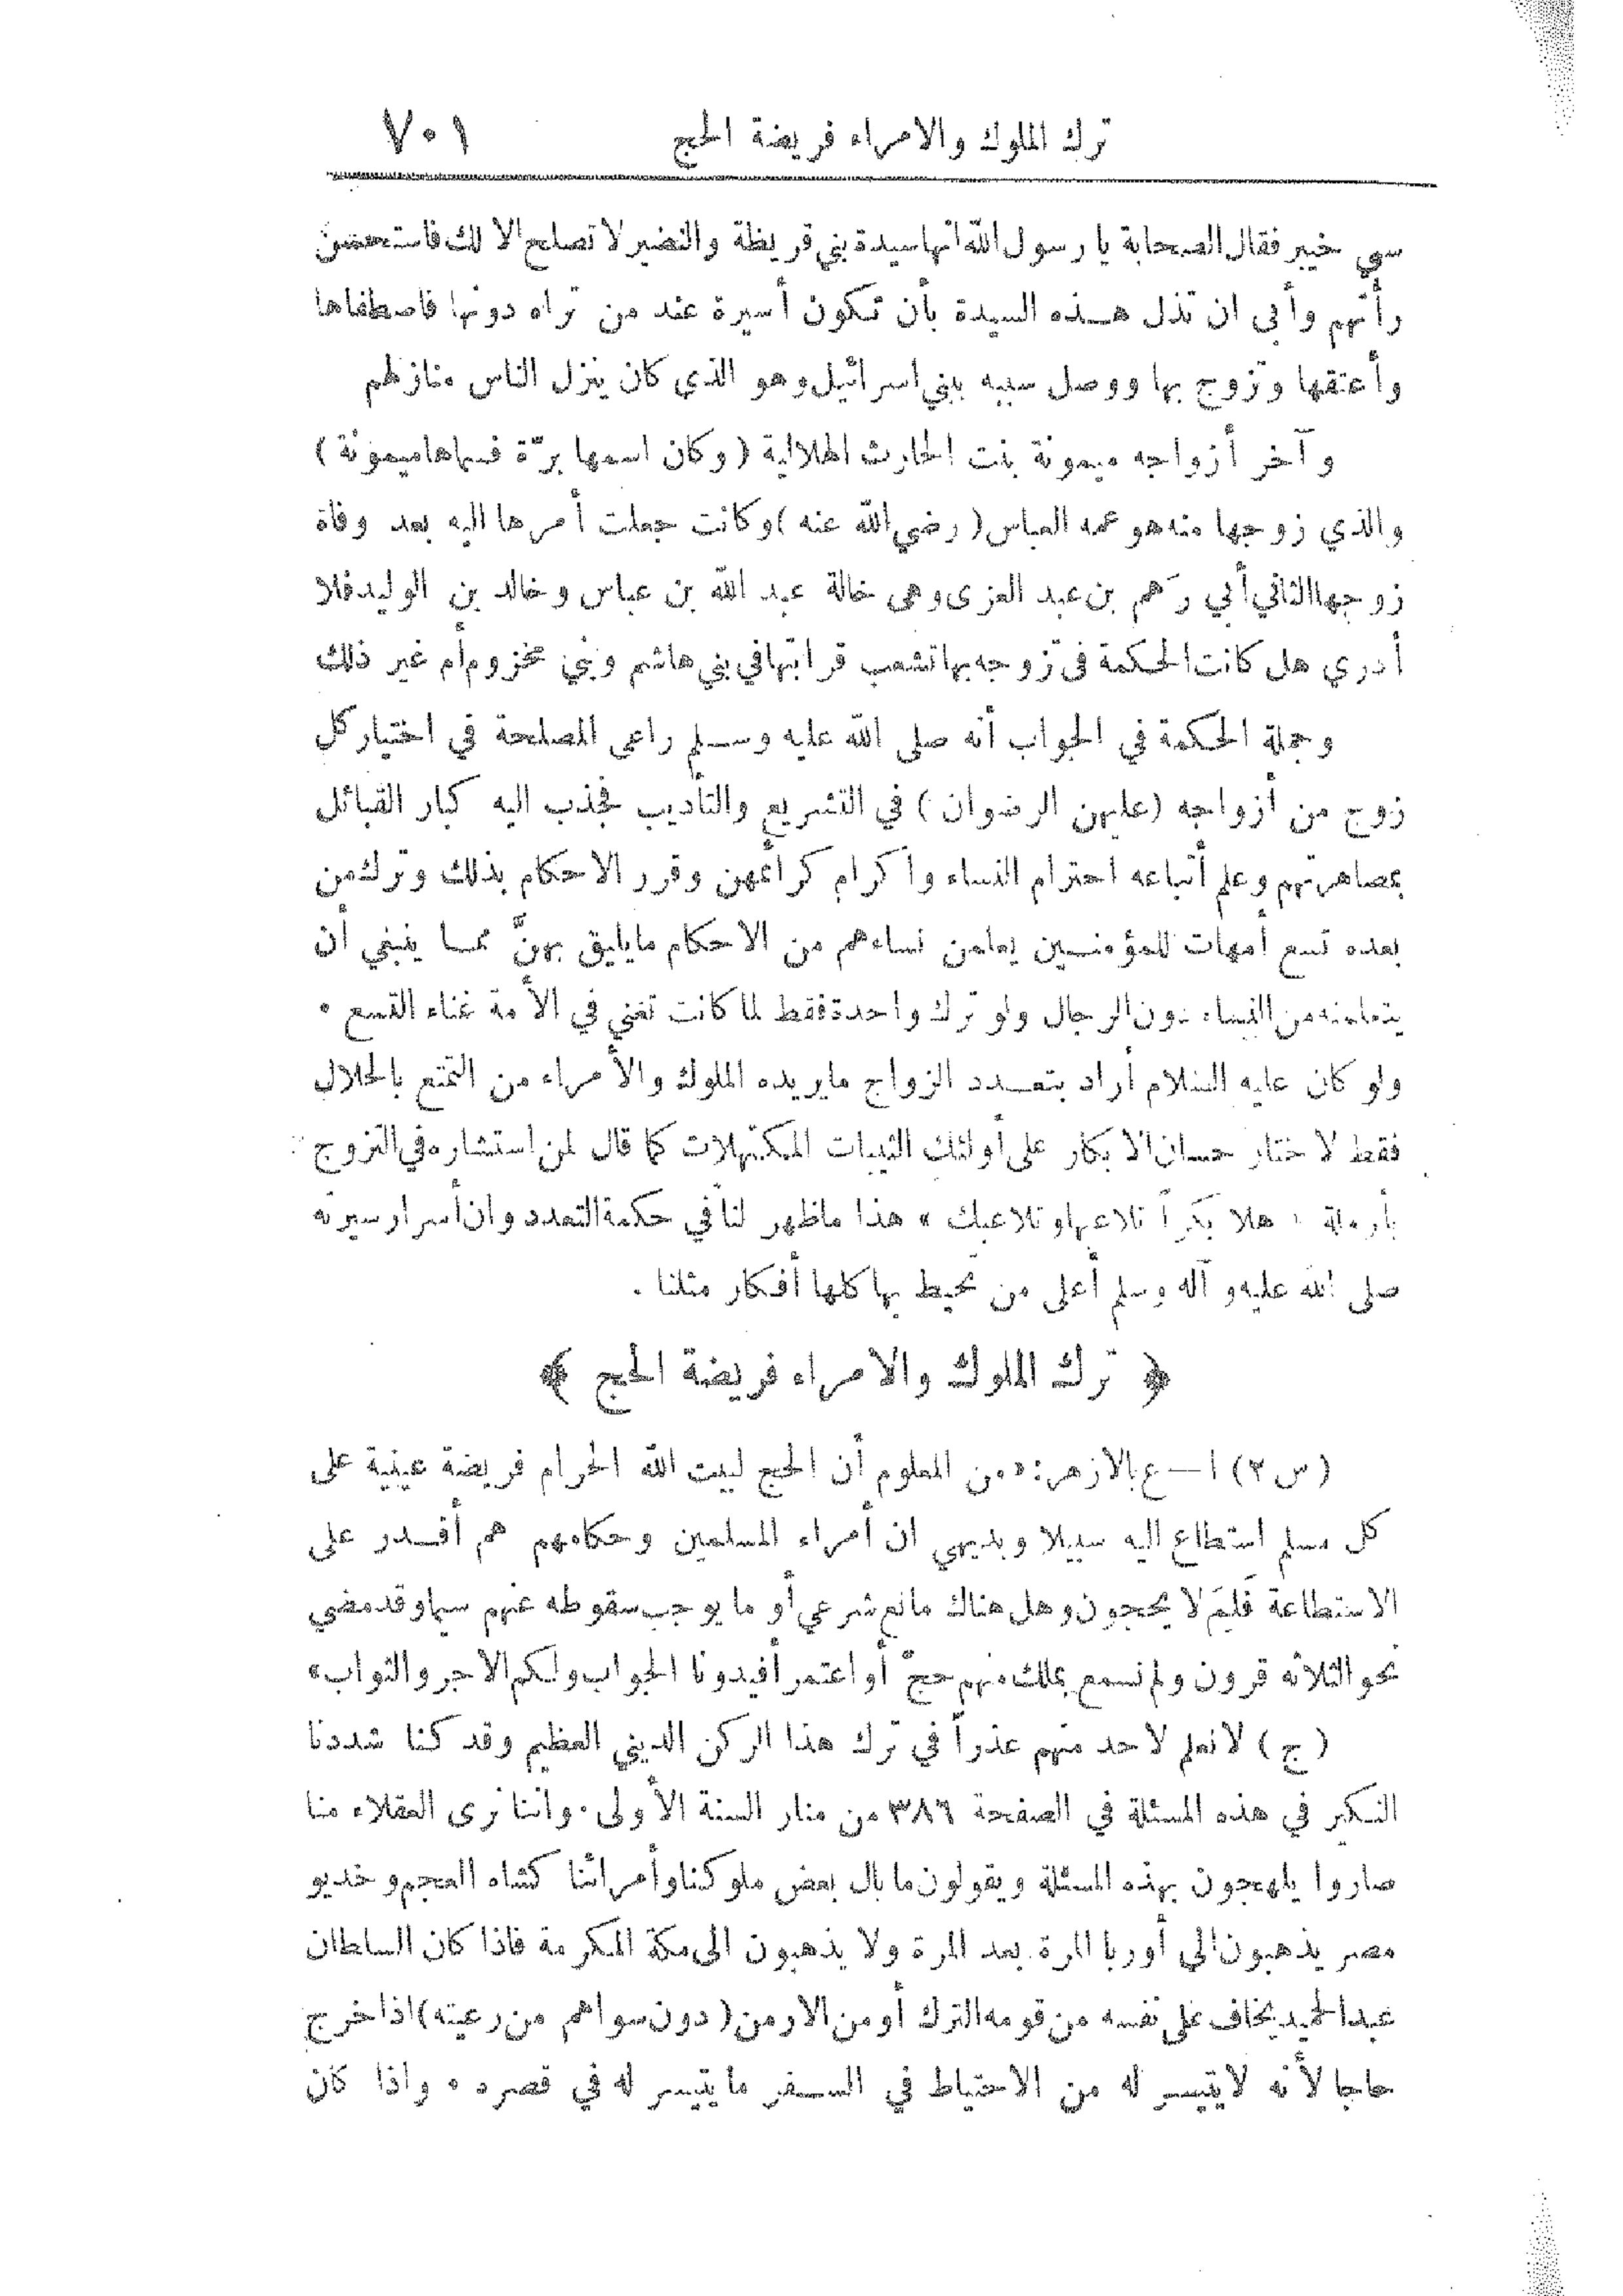 ترك الملوك والامراء فريضة الحج ٧٠١
سبي خيبر فقال الصحابة يا رسول الله انها سيدة بني قريظة والنضير لا تصلح الا لك فاستحسن
رأيهم وأبى ان تذل هذه السيدة بأن تكون أسيرة عند من تراه دونها فاصطفاها
وأعتقها وتزوج بها ووصل سببه ببني اسرائيل وهو الذي كان ينزل الناس منازلهم
وآخر أزواجه ميمونة بنت الحارث الهلالية (وكان اسمها برّة فسماها ميمونة)
والذي زوجها منه هو عمه العباس (رضي الله عنه) وكانت جعلت أمرها اليه بعد وفاة
زوجها الثاني أبي رهم بن عبد العزى وهى خالة عبد الله بن عباس وخالد بن الوليد فلا
أدري هل كانت الحكمة في تزوجه بها تشعب قرابتها في بني هاشم وبني مخزوم أم غير ذلك
وجملة الحكمة في الجواب أنه صلى الله عليه وسلم راعى المصلحة في اختيار كل
زوج من أزواجه (عليهن الرضوان) في التشريع والتأديب فجذب اليه كبار القبائل
بمصاهرتهم وعلم أتباعه احترام النساء واكرام كرائمهن وقرر الاحكام بذلك وترك من
بعده تسع أمهات للمؤمنين يعلمن نساءهم من الاحكام مايليق بهنَّ مما ينبغي أن
يتعلمنه من النساء دون الرجال ولو ترك واحدة فقط لما كانت تغني في الأمة غناء التسع .
ولو كان عليه السلام أراد بتعدد الزواج مايريده الملوك والأمراء من التمتع بالحلال
فقط لاختار حسان الابكار على أولئك الثيبات المكتهلات كما قال لمن استشاره في التزوج
بأرملة «هلا بكراً تلاعبها وتلاعبك» هذا ماظهر لنا في حكمة التعدد وان أسرار سيرته
صلى الله عليه وآله وسلم أعلى من تحيط بها كلها أفكار مثلنا .
﴿ ترك الملوك والامراء فريضة الحج ﴾
(س ٢) ا — ع بالازهر: «من المعلوم أن الحج لبيت الله الحرام فريضة عينية على
كل مسلم استطاع اليه سبيلا وبديهي ان أمراء المسلمين وحكامهم هم أقدر على
الاستطاعة فَلِمَ لا يحجون وهل هناك مانع شرعي أو ما يوجب سقوطه عنهم سيما وقد مضى
نحو الثلاثه قرون ولم نسمع بملك منهم حجّ أو اعتمر أفيدونا الجواب ولكم الاجر والثواب»
(ج) لانعلم لاحد منهم عذراً في ترك هذا الركن الديني العظيم وقد كنا شددنا
النكير في هذه المسئلة في الصفحة ٣٨٦ من منار السنة الأولى . واننا نرى العقلاء منا
صاروا يلهجون بهذه المسئلة ويقولون ما بال بعض ملوكنا وأمرائنا كشاه العجم وخديو
مصر يذهبون الى أوربا المرة بعد المرة ولا يذهبون الى مكة المكرمة فاذا كان السلطان
عبد الحميد يخاف على نفسه من قومه الترك أو من الارمن (دون سواهم من رعيته) اذا خرج
حاجا لأنه لا يتيسر له من الاحتياط في السفر ما يتيسر له في قصره . واذا كان